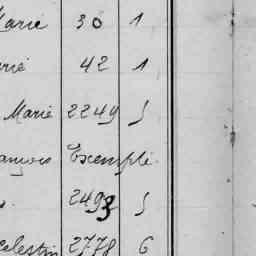 Marie 30 1
rie 42 1
Marie 2249 5
ançois Exempté
2493 5
Celestin 2778 6